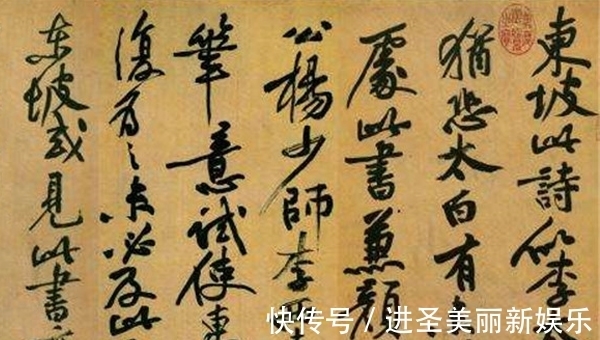 東坡此詩似李
猶恐太白有
處此書兼顏
公楊少師李
筆意試使東
復為之未必及此
东坡或見此書
快传号 / 进圣美丽新娱乐